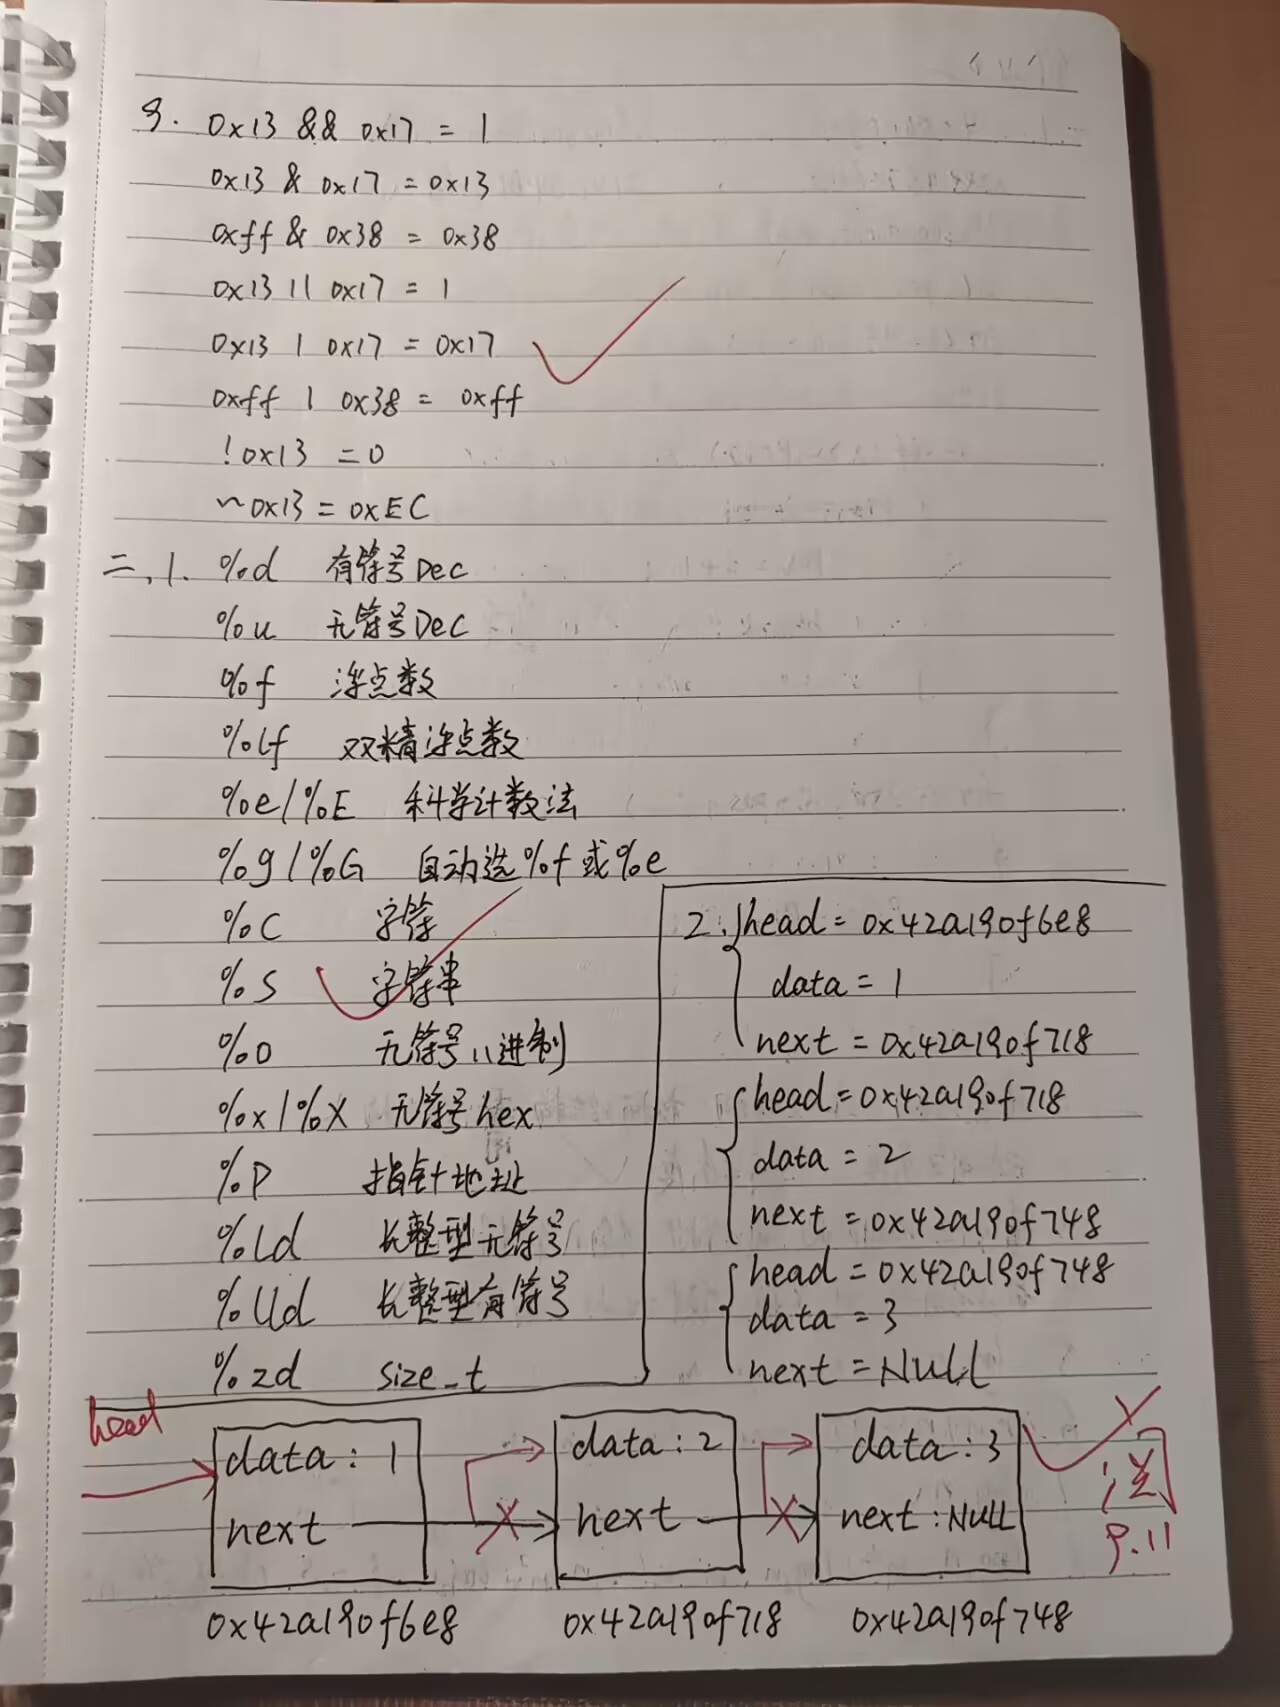 9. 0x13 && 0x17 = 1
0x13 & 0x17 = 0x13
0xff & 0x38 = 0x38
0x13 || 0x17 = 1
0x13 | 0x17 = 0x17
0xff | 0x38 = 0xff
!0x13 = 0
~0x13 = 0xEC
二、1. %d 有符号Dec
%u 无符号Dec
%f 浮点数
%lf 双精浮点数
%e/%E 科学计数法
%g/%G 自动选%f或%e
%c 字符
%s 字符串
%o 无符号八进制
%x/%X 无符号hex
%p 指针地址
%ld 长整型无符号
%lld 长整型有符号
%zd size_t
2. head = 0x42a190f6e8
data = 1
next = 0x42a190f718
head = 0x42a190f718
data = 2
next = 0x42a190f748
head = 0x42a190f748
data = 3
next = Null
head
data : 1
next
0x42a190f6e8
data : 2
next
0x42a190f718
data : 3
next : Null
0x42a190f748
9.11